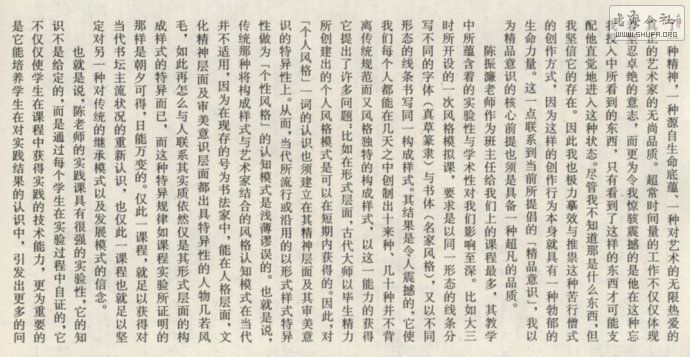 书法公社
WWW.SHUFA.ORG
种精神，一种源自生命底蕴、一种对艺术的无限热爱的
正的艺术家的无尚品质。超常时间量的工作不仅仅体现
坚忍卓绝的意志，而更为令我惊骇震撼的是他在这种忘
我投入中所看到的东西，只有看到了这样的东西才可能支
配他直觉地进入这种状态。尽管我不知道那是什么东西，但
我坚信它的存在。因此我也极力摹效与推祟这种苦行僧式
的创作方式，因为这样的创作行为本身就具有一种勃郁的
生命力量。这一点联系到当前所提倡的「精品意识」，我以
为精品意识的核心前提也须是具备一种超凡的品质。
陈振濂老师作为班主任给我们上的课程最多，其教学
中所蕴含着的实验性与学术性对我们影响至深。比如大三
时所开设的一次风格模拟课，要求是以同一形态的线条分
写不同的字体（真草篆隶）与书体（名家风格），又以不同
形态的线条书写同一构成样式。其结果是令人震撼的，它使
我们每个人都能在几天之中创制出十来种，几十种并不背
离传统规范而又风格独特的构成样式，以这一能力的获得
它提出了许多问题：比如在形式层面，古代大师以毕生精力
所创建出的个人风格模式是可以在短期内获得的。因此，对
「个人风格」一词的认识也须建立在其精神层面及其审美意
识的特异性上。从而，当代所流行或沿用的以形式样式特异
性做为「个性风格」的认知模式是浅薄谬误的。也就是说，
传统那种将构成样式与艺术家结合的风格认知模式在当代
并不适用，因为在现存的号为书法家中，能在人格层面，文
化精神层面及审美意识层面都出具特异性的人物几若凤
毛，如此再怎么与人联系其实质依然仅是其形式层面的构
成样式的特异而已，而这种特异规律如课程实验所证明的
那样是朝夕可得，日能万变的。仅此一课程，就足以获得对
当代书坛主流状况的重新认识，也仅此一课程也就足以坚
定对另一种对传统的继承模式以及发展模式的信念。
也就是说，陈老师的实践课具有很强的实验性，它的知
识不是给定的，而是通过每个学生在实验过程中自证的，它
不仅仅使学生在课程中获得实践的技术能力，更为重要的
是它能培养学生在对实践结果的认识中，引发出更多的问